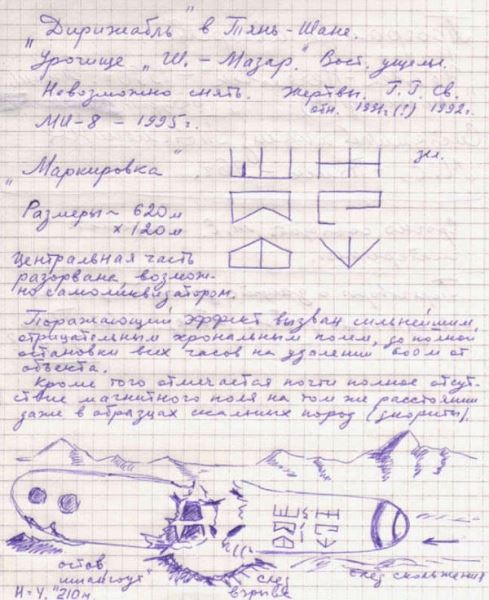 „Дирижабль" в Тянь-Шане.
Урочище „Ш.-Мазар." Вост. ущелье.
Невозможно снять. Жертвы. Г.Г. Св.
отн. 1991 (?) 1992.
МИ-8 - 1995г.
„Маркировка"
зел.
Размеры ~ 620м
х 120м
Центральная часть
разорвана, возмож-
но самоликвидатором.
Поражающий эффект вызван сильнейшим,
отрицательным хрональным полем, до полной
остановки всех часов на удалении 800м от
объекта.
Кроме того отмечается почти полное отсут-
ствие магнитного поля на том же расстоянии
даже в образцах скальных пород (диориты).
остов
шпангоут"
след
взрыва
след скольжения